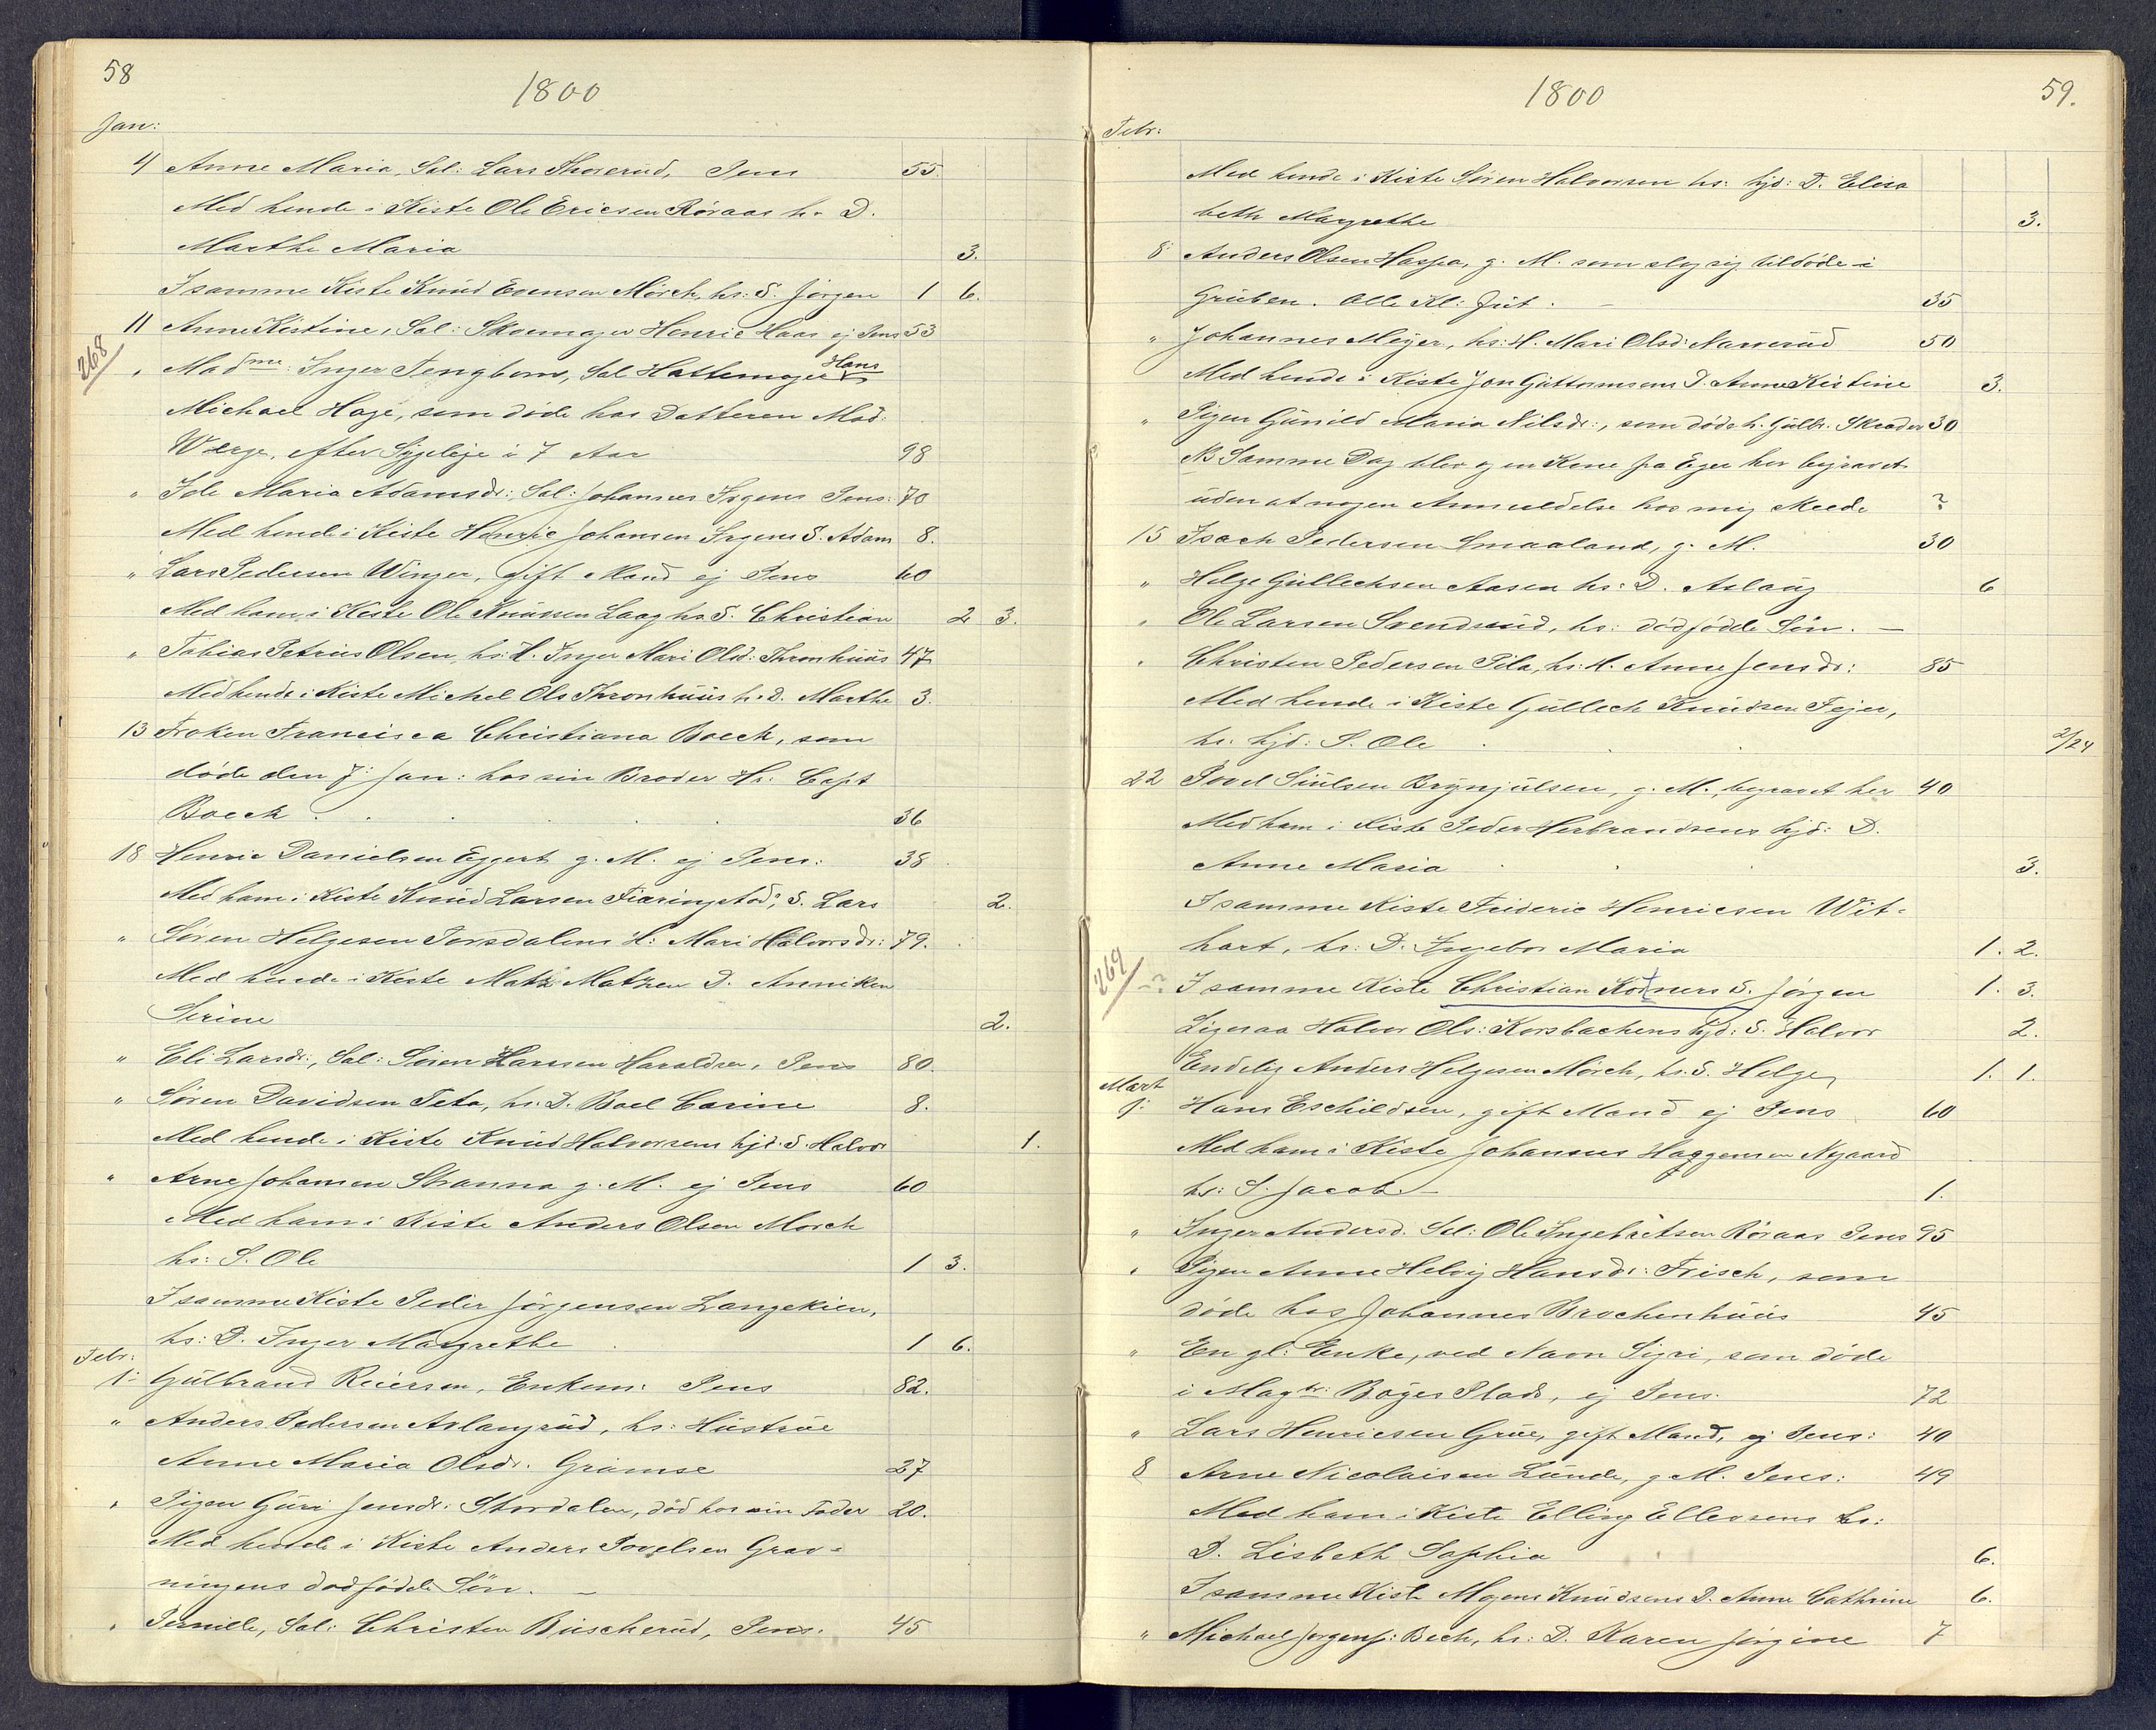 58
1800
Jan:
4 Anne Maria, Sal: Lars Thorerud, Pens 55.
Med hende i Kiste Ole Ericsen Röraas h. D.
Marthe Maria 3.
I samme Kiste Knud Evensen Mörch, hs: S. Jörgen 1 6.
11 Anne Kistine, Sal: Skoemager Henric Haas ej Pens 53
268
" Madme: Inger Tengbom, Sal Hattemager Hans
Michael Hage, som döde hos Datteren Mad:
Werge, efter Sygeleje i 7 Aar 98
" Ide Maria Adamsdr:, Sal: Johannes Irgens Pens: 70
Med hende i Kiste Henric Johansen Irgens S. Adam 8.
" Lars Pedersen Winger, Gift Mand ej Pens 60
Med ham i Kiste Ole Knudsen Laag hs. S. Christian 2 3.
" Tobias Petrus Olsen, hs: H. Inger Mari Olsd: Thronhuus 47
Med hende i Kiste Michel Ols Thronhuus h. D. Marthe 3.
13 Froken Francisca Christiana Boeck, som
döde den 7: Jan: hos sin Broder Hr: Capt
Boeck 36
18 Henric Danielsen Eggert g. M. ej Pens: 38
Med ham i Kiste Knud Larsen Fiaringstad, S. Lars 2.
" Sören Helgesen Jorsdalens H: Mari Halvorsdr: 79.
Med hende i Kiste Matz Matzen D. Anniken
Serine 2.
" Eli Larsdr:, Sal: Sören Hansen Haraldsen, Pens 80.
" Sören Davidsen Teta, hs. D. Boel Carine 8.
Med hende i Kiste Knud Halvorsens hjd. S. Halvor 1.
" Arne Johansen Stranna g. M. ej Pens 60
Med ham i Kiste Anders Olsen Morch
hs: S. Ole 1 3.
I samme Kiste Peder Jörgensen Langekien,
hs: D. Inger Margrethe 1 6.
Febr:
1: Gulbrand Reiersen, Enkem: Pens 82.
" Anders Pedersen Aslangrud, hs: Hustrue
Anne Maria Olsdr. Gramse 27
" Pigen Guri Jensdr: Stordalen, död hos sin Fader 20.
Med hende i Kiste Anders Povelsen Grav=
ningens dodfödde Sön. —
" Pernille, Sal: Christen Buscherud, Pens. 45
1800
59.
Febr:
Med hende i Kiste Sören Halvorsen hs: hjd: D. Elisa
beth Magrethe 3.
8 Anders Olsen Haspa, g. M. som slog sig tildöde i
Gruben. Alle Kl: Gut. — 35
" Johannes Meyer, hs: H. Mari Olsd: Narverud 50
Med hende i Kiste Jon Guttormsens D. Anne Kistine 3.
" Pigen Gunild Maria Nilsdr:, som döde h. Gulbr. Skræder 30
NB Samme Dag blev og en Kone fra Eger her begravet
uden at nogen Anmeldelse hos mig skeede ?
15 Isach Pedersen Smaaland, g. M. 30
" Helge Gullechsen Aasen hs: D. Aslaug 6
" Ole Larsen Svendsrud, hs: dödfödde Sön. —
" Christen Pedersen Pila, hs: H. Anne Jensdr: 85
Med hende i Kiste Gullech Knudsen Fejer,
hs. hjd: S. Ole 2/24
22 Povel Siulsen Brynjulsen, g. M., begravet her 40
Med ham i Kiste Peder Herbrandsens hjd: D.
Anne Maria 3.
I samme Kiste Frideric Henricsen Wit-
hart, hs: D. Ingebor Maria 1. 2.
269
? I samme Kiste Christian Kotners S. Jörgen 1. 3.
Ligesaa Halvor Ols: Korsbachens hjd: S. Halvor 2.
Endelig Anders Helgesen Mörch, hs. S. Helge 1. 1.
Mart
1: Hans Eschildsen, gift Mand ej Pens 60
Med ham i Kiste Johannes Haggensen Nygaard
hs: S. Jacob — 1.
" Inger Andersd. Sal: Ole Ingebretsen Röraas Pens 95
" Pigen Anne Helvig Hansdr: Frisch, som
döde hos Johannes Brochenhuus 45
" En gl: Enke, ved Navn Sigri, som döde
i Magtr: Böyes Plads, ej Pens. 72
" Lars Henricsen Grue, gift Mand, ej Pens: 40
8 Arne Nicolaisen Lunde, g M. Pens: 49
Med ham i Kiste Elling Ellevsens hs:
D. Lisbeth Sophia 6.
I samme Kiste Mogens Knudsens D. Anne Cathrine 6.
" Michael Jörgens: Bech, hs: D. Karen Jörgine 7